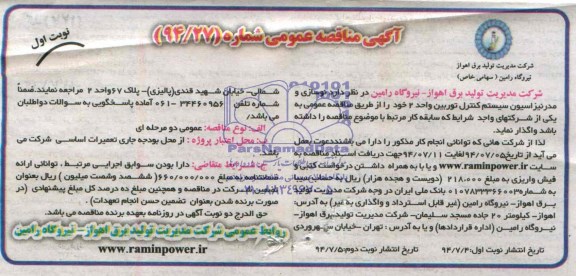 آگهی مناقصه عمومی شماره (۹۴/۲۷)
نوبت اول
شرکت مدیریت تولید برق اهواز
نیروگاه رامین (سهامی خاص)
شرکت مدیریت تولید برق اهواز- نیروگاه رامین در نظر دارد نوسازی و
مدرنیزاسیون سیستم کنترل توربین واحد ۲ خود را از طریق مناقصه عمومی به
یکی از شرکتهای واجد شرایط که سابقه کار مرتبط با موضوع مناقصه را داشته
باشد واگذار نماید.
لذا از شرکت هائی که توانائی انجام کار مذکور را دارا می باشند دعوت بعمل
می آید از تاریخ ۹۴/۰۷/۰۵ لغایت ۹۴/۰۷/۱۱ جهت دریافت اسناد مناقصه به
سایت www.raminpower.ir و یا با همراه داشتن درخواست کتبی و
فیش واریزی به مبلغ ۲۱۸.۰۰۰ (دویست و هجده هزار) ریال به حساب سیبا
به شماره ۰۱۰۷۸۳۳۳۶۶۰۰۳ بانک ملی ایران در وجه شرکت مدیریت تولید
برق اهواز- نیروگاه رامین (غیر قابل استرداد و واگذاری به غیر) به آدرس:
اهواز- کیلومتر ۲۰ جاده مسجد سلیمان- شرکت مدیریت تولید برق اهواز-
نیروگاه رامین (اداره قراردادها) و یا به آدرس: تهران -خیابان سهروردی
شمالی- خیابان شهید قندی(پالیزی)- پلاک ۶۷ واحد ۲ مراجعه نمایند.ضمناً
شماره تلفن ۳۴۴۶۰۹۵۶-۰۶۱ آماده پاسخگویی به سوالات داوطلبان
می باشد.
الف: نوع مناقصه: عمومی دو مرحله ای
ب: محل اعتبار پروژه : از محل بودجه جاری تعمیرات اساسی شرکت می
باشد.
ج: شرایط متقاضی: دارا بودن سوابق اجرایی مرتبط ، توانائی ارائه
ضمانتنامه به مبلغ ۶۶۰/۰۰۰/۰۰۰ (ششصد وشصت میلیون ) ریال بعنوان
تضمین شرکت در مناقصه و همچنین مبلغ ده درصد کل مبلغ پیشنهادی (در
صورت برنده شدن بعنوان تضمین حسن انجام تعهدات).
حق الدرج دو نوبت آگهی در روزنامه بعهده برنده مناقصه می باشد.
روابط عمومی شرکت مدیریت تولید برق اهواز- نیروگاه رامین
www.raminpower.ir
تاریخ انتشار نوبت اول:۹۴/۷/۴
تاریخ انتشار نوبت دوم:۹۴/۷/۵
ParsNamadData